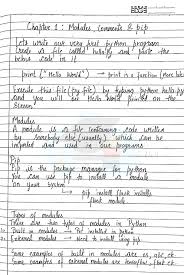 Chapter 1 : Modules, Comments & pip
Lets write our very first python program
Create a file called hello.py and paste the
below code in it
print ("Hello World") → print is a function (more later)
Execute this file (.py file) by typing python hello.py
and you will see Hello World printed on the
Screen
Modules
A module is a file containing code written
by somebody else (usually) which can be
imported and used in our programs
Pip
Pip is the package manager for python
You can use pip to install a module
on your system
pip install flask installs
flask module
Types of modules
There are two types of modules in Python
Built in modules → Pre installed in python
External modules → Need to install using pip
Some examples of built in modules are os, abc, etc
Some examples of external modules are tensorflow, flask etc